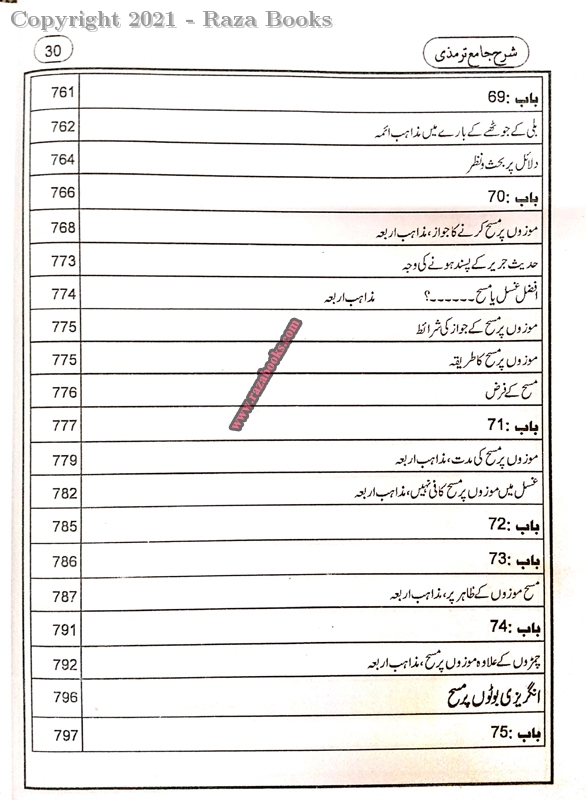 Copyright 2021 - Raza Books
شرح جامع ترمذی 30
باب :69 761
بلی کے جوٹھے کے بارے میں مذاہب ائمہ 762
دلائل پر بحث و نظر 764
باب :70 766
موزوں پر مسح کرنے کا جواز، مذاہب اربعہ 768
حدیث جریر کے پسند ہونے کی وجہ 773
افضل غسل یا مسح ۔۔۔۔۔۔؟ مذاہب اربعہ 774
موزوں پر مسح کے جواز کی شرائط 775
موزوں پر مسح کا طریقہ 775
مسح کے فرض 776
باب :71 777
موزوں پر مسح کی مدت، مذاہب اربعہ 779
غسل میں موزوں پر مسح کافی نہیں، مذاہب اربعہ 782
باب :72 785
باب :73 786
مسح موزوں کے ظاہر پر، مذاہب اربعہ 787
باب :74 791
چمڑوں کے علاوہ موزوں پر مسح، مذاہب اربعہ 792
انگریزی بوٹوں پر مسح 796
باب :75 797
www.razabooks.com